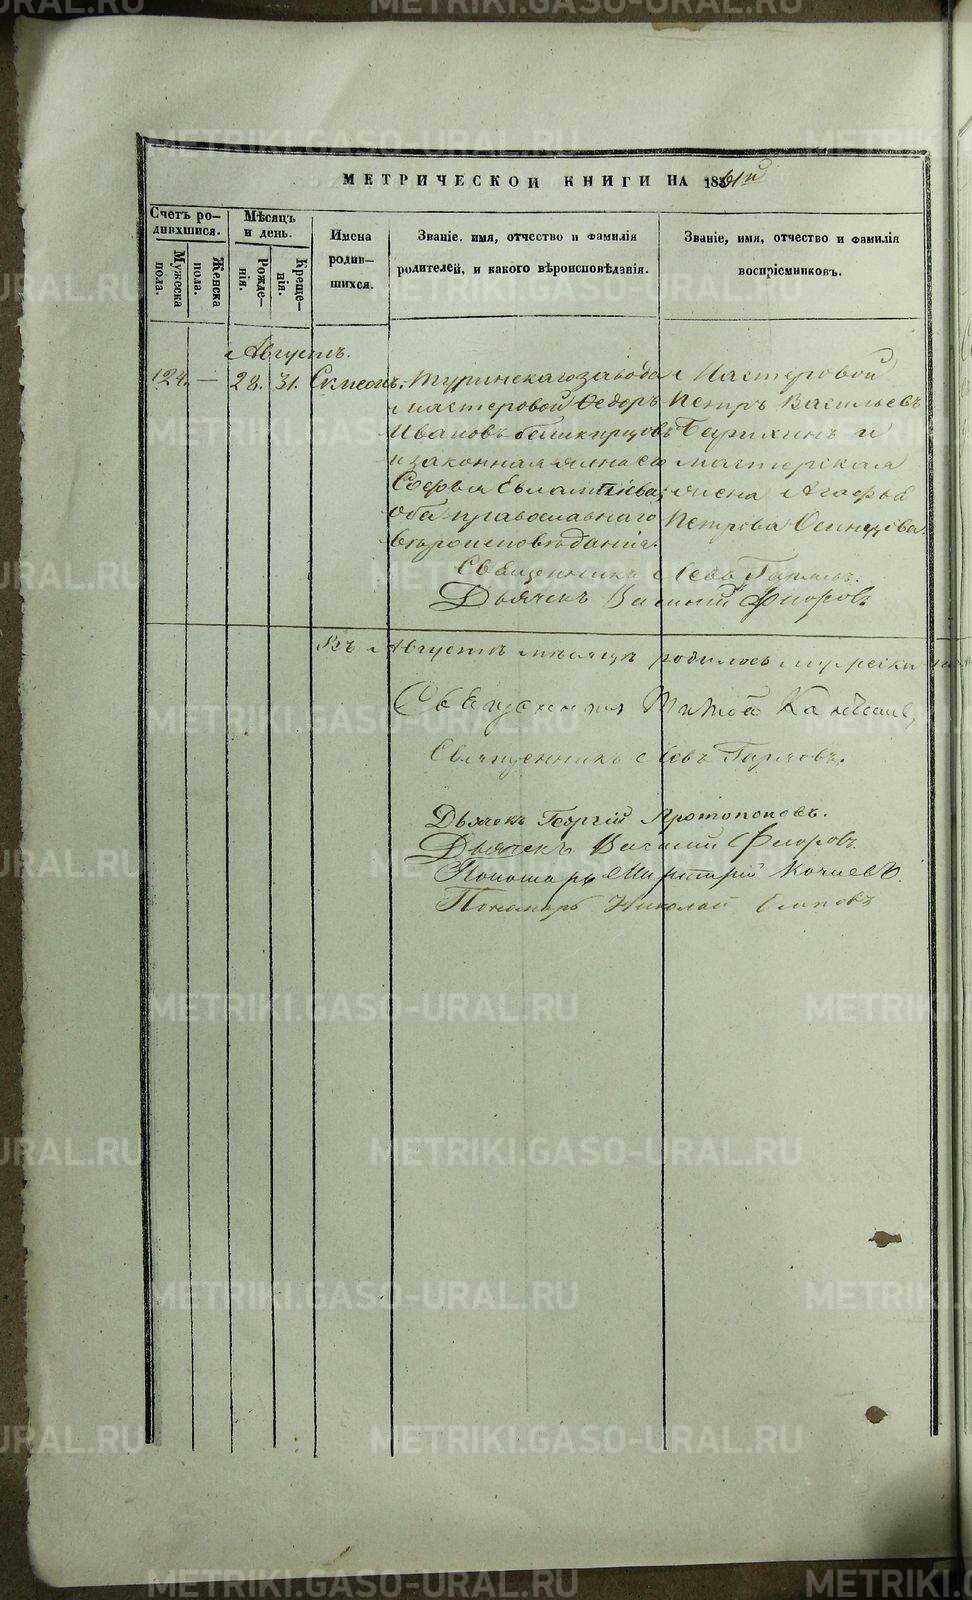 МЕТРИЧЕСКОЙ КНИГИ НА 1861й
Счетъ родившихся.
Мужеска пола.
Женска пола.
Мѣсяцъ и день.
Рожденія.
Крещенія.
Имена родившихся.
Званіе, имя, отчество и фамилія родителей, и какого вѣроисповѣданія.
Званіе, имя, отчество и фамилія воспріемниковъ.
Августъ.
124. — 28. 31. Симеонъ.
Туринскаго завода
мастеровой Ѳедоръ
Ивановъ Башкирцовъ
и законная жена его
Софья Евлампіева;
оба православнаго
вѣроисповѣданія.
Мастеровой
Петръ Васильевъ
и мастерская
жена Агафья
Петрова
Священникъ Левъ Гаряевъ.
Дьячекъ Василій Флоровъ
Въ Августѣ мѣсяцѣ родилось мужеска
Священникъ
Священникъ Левъ Гаряевъ.
Дьячекъ Георгій Протопоповъ.
Дьячекъ Василій Флоровъ.
Пономарь
Пономарь Николай
METRIKI.GASO-URAL.RU